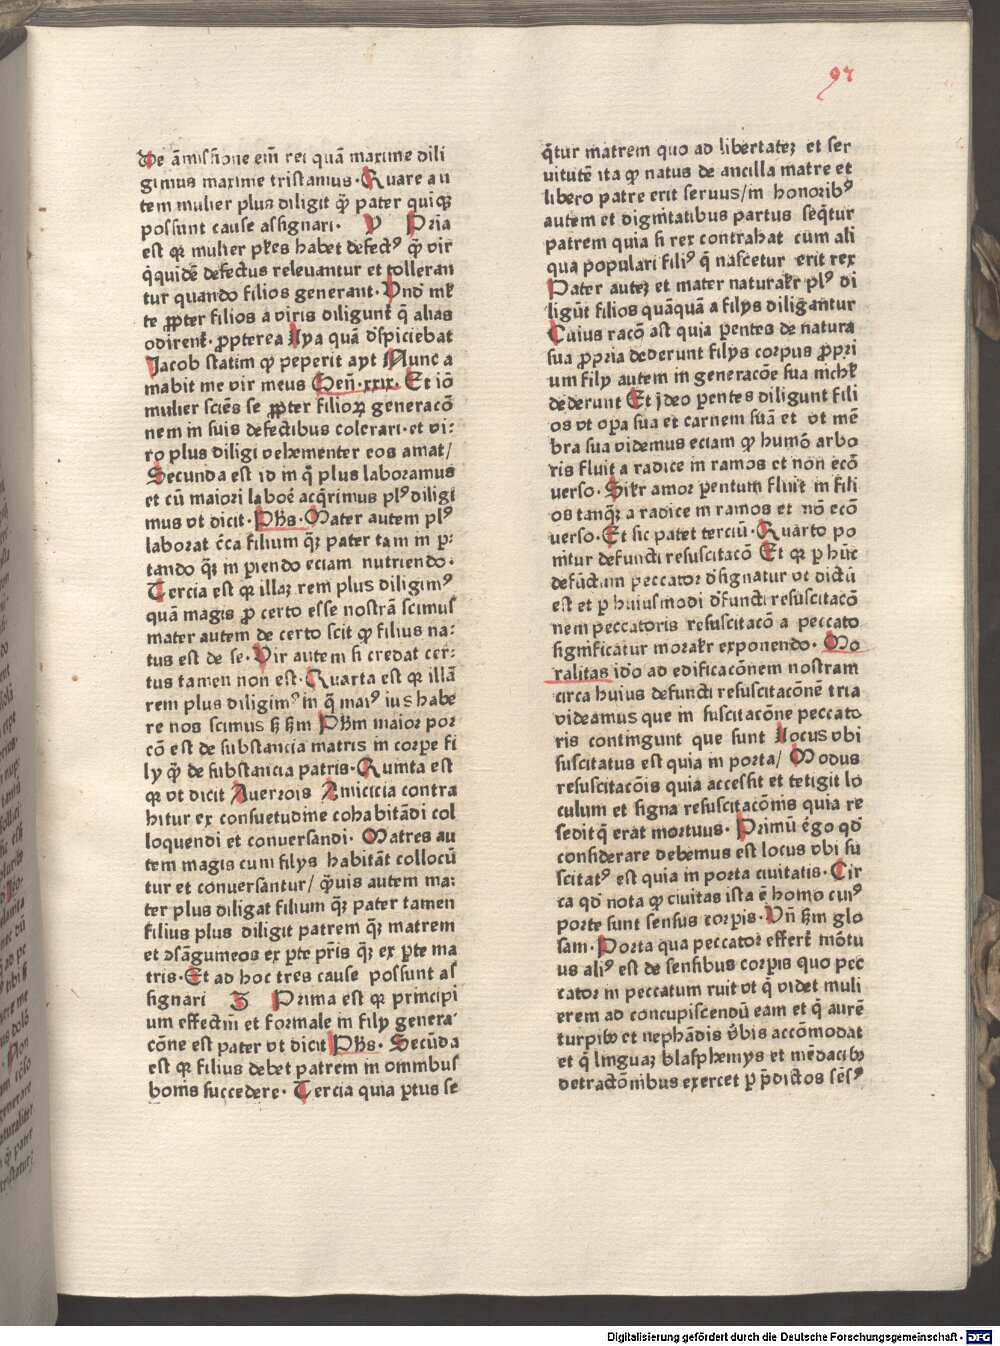 97
De āmissione em̄ rei quā maxime dili
gimus maxime tristamus. Quare au
tem mulier plus diligit qꝫ pater quiqꝫ
possunt cause assignari. V Prīa
est qꝛ mulier pl̄res habet defectꝰ qꝫ vir
q̄quidē defectus relevantur et tolleran
tur quando filios generant. Vnd̄ ml̄r
te ꝓpter filios a viris diligunt̄ q̄ alias
odirent̄. ꝓpterea lya quā d̄spiciebat
Jacob statim qꝫ peperit ayt Nunc a
mabit me vir meus Gen̄.xxix. Et iō
mulier sciēs se ꝓpter filioꝝ generacō
nem in suis defectibus tolerari. et vi⸗
ro plus diligi vehementer eos amat/
Secunda est id in q̄ plus laboramus
et cū maiori laboē acq̄rimus plꝰ diligi
mus vt dicit. Ph̄s. Mater autem plꝰ
laborat c̄ca filium qꝫ pater tam in p:
tando qꝫ in piendo eciam nutriendo.
Tercia est qꝛ illaꝫ rem plus diligimꝰ
quā magis ꝓ certo esse nostrā scimus
mater autem de certo scit qꝫ filius na⸗
tus est de se. Vir autem si credat cer⸗
tus tamen non est. Quarta est qꝛ illā
rem plus diligimꝰ in q̄ maiꝰ ius habe
re nos scimus ß ßm Ph̄m maior por
cō est de substancia matris in corpe fi
ly qꝫ de substancia patris. Quinta est
qꝛ vt dicit Auerrois Amicicia contra
hitur ex consuetudine cohabitādi col
loquendi et conuersandi. Matres au
tem magis cum filys habitāt collocū
tur et conuersantur/ q̄uis autem ma⸗
ter plus diligat filium qꝫ pater tamen
filius plus diligit patrem qꝫ matrem
et ꝯsāguineos ex ꝑte pr̄is qꝫ ex ꝑte ma
tris. Et ad hoc tres cause possunt as
signari 3 Prima est qꝛ principi
um effectiū et formale in fily genera⸗
cōne est pater vt dicit Ph̄s. Secūda
est qꝛ filius debet patrem in omnibus
bonis succedere. Tercia quia ꝑtus se
q̄tur matrem quo ad libertateꝫ et ser
uitutē ita qꝫ natus de ancilla matre et
libero patre erit seruus/in honoribꝰ
autem et dignitatibus partus seq̄tur
patrem quia si rex contrahat cum ali
qua populari filiꝰ q̄ nascetur erit rex
Pater auteꝫ et mater naturalr̄ plꝰ di
ligūt filios quāquā a filys diligantur
Cuius racō ast quia ꝑentes de natura
sua ꝓpria dederunt filys corpus ꝓpri
um fily autem in generacōe sua nichl̄
dederunt Et jdeo ꝑentes diligunt fili
os vt oꝑa sua et carnem suā et vt mē
bra sua videmus eciam qꝫ humō arbo
ris fluit a radice in ramos et non ecō
uerso. Silr̄ amor ꝑentum fluit in fili
os tanqꝫ a radice in ramos et nō ecō
uerso. Et sic patet terciū. Quarto po
nitur defuncti resuscitacō Et qꝛ ꝑ hūc
defūctum peccator d̄signatur vt dictū
est et ꝑ huiusmodi d̄functi resuscitacō
nem peccatoris resuscitacō a peccato
significatur moralr̄ exponendo. Mo
ralitas idō ad edificacōnem nostram
circa huius defuncti resuscitacōnē tria
videamus que in suscitacōne peccato
ris contingunt que sunt Locus vbi
suscitatus est quia in porta/ Modus
resuscitacōis quia accessit et tetigit lo
culum et signa resuscitacōnis quia re
sedit q̄ erat mortuus. Primū ḡo qd̄
considerare debemus est locus vbi su
scitatꝰ est quia in porta ciuitatis. Cir
ca qd̄ nota qꝫ ciuitas ista ē homo cuiꝰ
porte sunt sensus corpis. Vn̄ ßm glo
sam. Porta qua peccator effert̄ mōtu
us aliꝰ est de sensibus corpis quo pec
cator in peccatum ruit vt q̄ videt muli
erem ad concupiscendū eam et q̄ aurē
turpibꝫ et nephādis v̄bis accōmodat
et q̄ linguaꝫ blasphemys et mēdacibꝫ
detractōnibus exercet ꝑ p̄dictos sēsꝰ
Digitalisierung gefördert durch die Deutsche Forschungsgemeinschaft - DFG